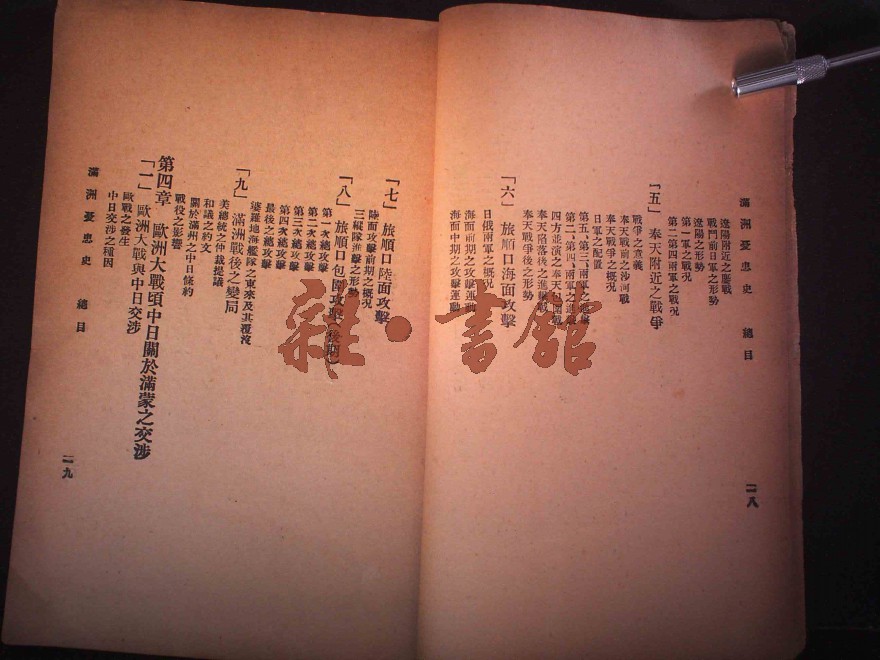 滿洲憂患史　總目
遼陽附近之鏖戰
戰鬥前日軍之形勢
遼陽之形勢
第一軍之戰況
第二第四兩軍之戰況
「五」　奉天附近之戰爭
戰爭之意義
奉天戰前之沙河戰
奉天戰爭之概況
日軍之配置
第五、第三、兩軍之進擊
第二、第四、兩軍之進擊
四方並演之奉天包圍戰
奉天陷落後之進擊戰
奉天戰爭後之形勢
「六」　旅順口海面攻擊
日俄兩軍之概況
海面前期之攻擊運動
海面中期之攻擊運動
二八
「七」　旅順口陸面攻擊
陸面攻擊前期之概況
三縱隊進擊之形勢
「八」　旅順口包圍攻擊（後期）
第一次總攻擊
第二次總攻擊
第三次總攻擊
第四次總攻擊
最後之總攻擊
婆羅地海艦隊之東來及其覆沒
「九」　滿洲戰後之變局
美總統之仲裁提議
和議之約文
關於滿州之中日條約
戰役之影響
第四章　歐洲大戰頃中日關於滿蒙之交涉
「一」　歐洲大戰與中日交涉
歐戰之發生
中日交涉之種因
滿洲憂患史　總目
二九
雜·書館